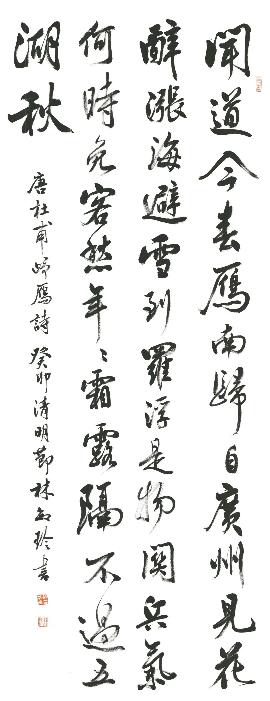 聞道今春鴈南歸自廣州見花
辭漲海避雪到羅浮是物関兵氣
何時免客愁年〻霜露隔不過五
湖秋
唐杜甫歸鴈詩癸卯清明節林玲書